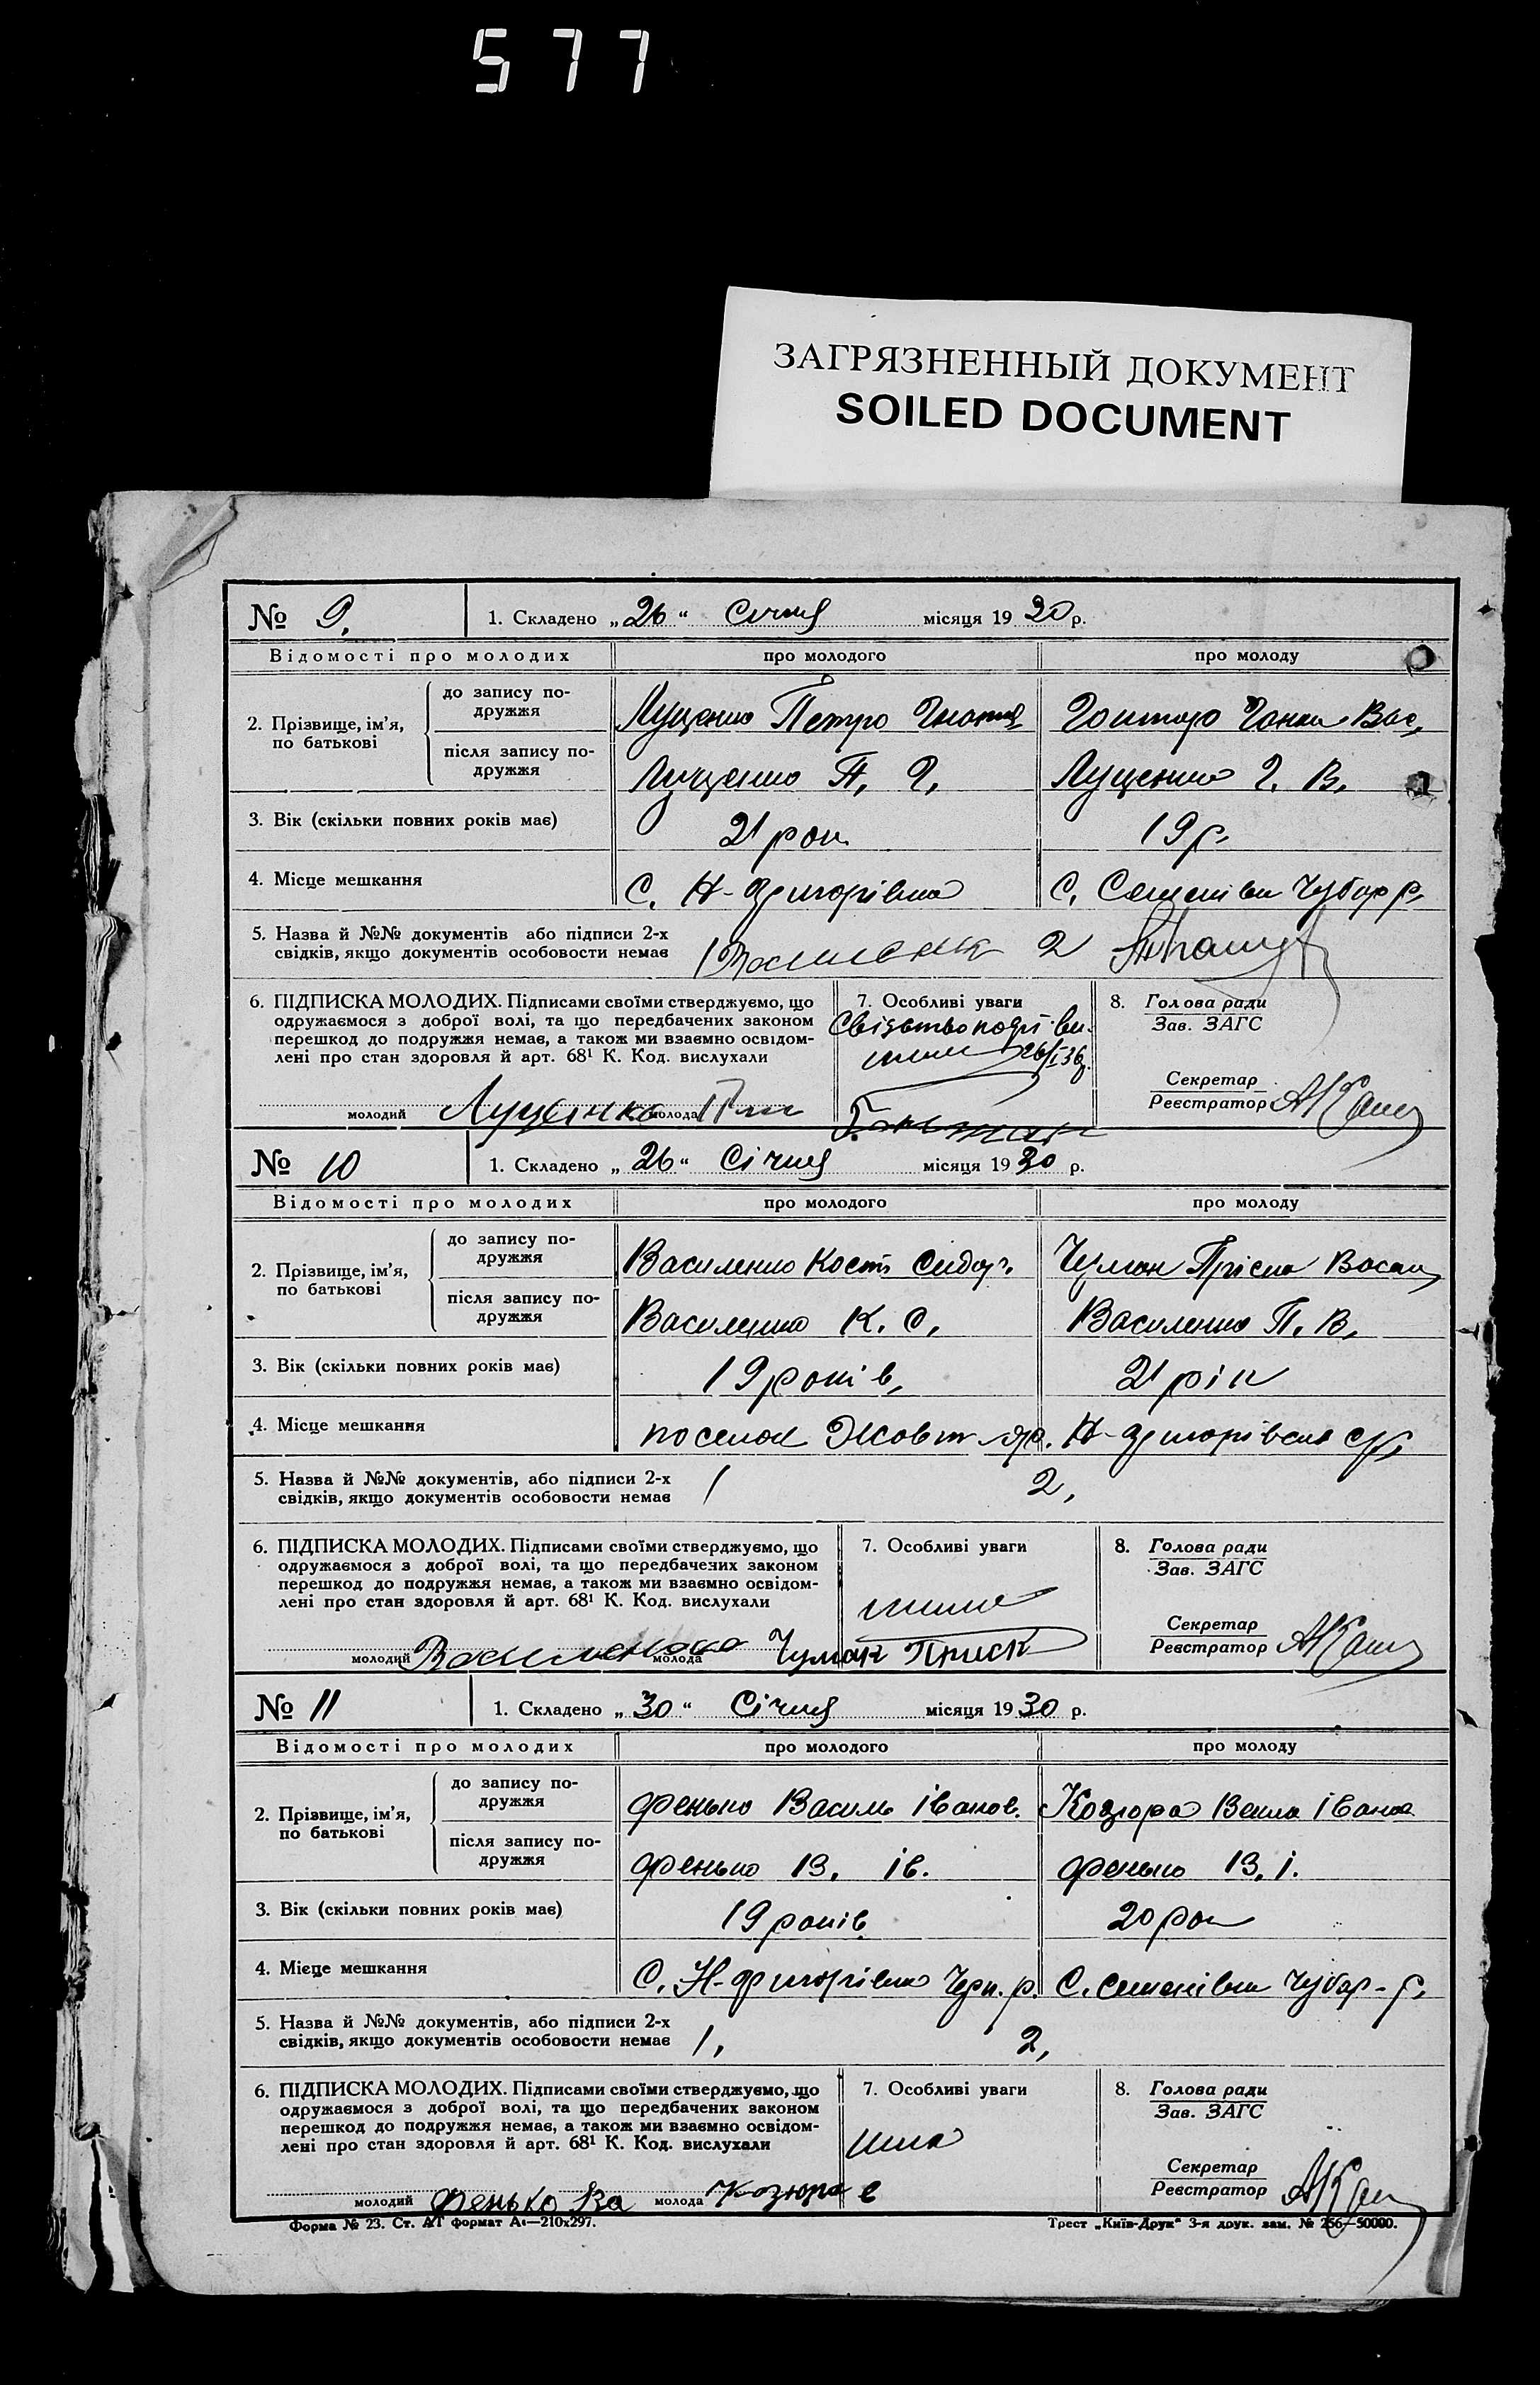 577
ЗАГРЯЗНЕННЫЙ ДОКУМЕНТ
SOILED DOCUMENT
№ 9. 1. Складено „26“ Січня місяця 1930 р.
Відомості про молодих про молодого про молоду
2. Прізвище, ім'я, по батькові
до запису подружжя Луценко Петро Гнатів Ганна Вас,
після запису подружжя Луценко П. Г. Луценко Г. В.
3. Вік (скільки повних років має) 21 рок 19 р.
4. Місце мешкання С. Н-Григорівка С. Семенівка Чубар р.
5. Назва й №№ документів або підписи 2-х
свідків, якщо документів особовости немає 1 Василенк 2
6. ПІДПИСКА МОЛОДИХ. Підписами своїми стверджуємо, що
одружаємося з доброї волі, та що передбачених законом
перешкод до подружжя немає, а також ми взаємно освідом-
лені про стан здоров'я й арт. 68¹ К. Код. вислухали
молодий Луценко молода
7. Особливі уваги
8. Голова ради
Зав. ЗАГС
Секретар
Реєстратор
№ 10 1. Складено „26“ Січня місяця 1930 р.
Відомості про молодих про молодого про молоду
2. Прізвище, ім'я, по батькові
до запису подружжя Василенко Кость Сидор. Чумак Пріська Васил
після запису подружжя Василенко К. С. Василенко П. В.
3. Вік (скільки повних років має) 19 років, 21 рік
4. Місце мешкання поселок Жовт Н-Григорівка
5. Назва й №№ документів, або підписи 2-х
свідків, якщо документів особовости немає 1 2,
6. ПІДПИСКА МОЛОДИХ. Підписами своїми стверджуємо, що
одружаємося з доброї волі, та що передбачених законом
перешкод до подружжя немає, а також ми взаємно освідом-
лені про стан здоровля й арт. 68¹ К. Код. вислухали
молодий Василенко молода Чумак Приск
7. Особливі уваги
8. Голова ради
Зав. ЗАГС
Секретар
Реєстратор
№ 11 1. Складено „30“ Січня місяця 1930 р.
Відомості про молодих про молодого про молоду
2. Прізвище, ім'я, по батькові
до запису подружжя Фенько Василь Іванов. Козюра Векла Іванов
після запису подружжя Фенько В. Ів. Фенько В. І.
3. Вік (скільки повних років має) 19 років 20 рок
4. Місце мешкання С. Н-Григорівка Черн. р. С. Семенівка Чубар-р.
5. Назва й №№ документів, або підписи 2-х
свідків, якщо документів особовости немає 1, 2,
6. ПІДПИСКА МОЛОДИХ. Підписами своїми стверджуємо, що
одружаємося з доброї волі, та що передбачених законом
перешкод до подружжя немає, а також ми взаємно освідом-
лені про стан здоровля й арт. 68¹ К. Код. вислухали
молодий Фенько Ва молода Козюра в
7. Особливі уваги
8. Голова ради
Зав. ЗАГС
Секретар
Реєстратор
Форма № 23. Ст. АТ формат А4—210x297. Трест „Київ-Друк“ 3-я друк. зам. № 256—50000.